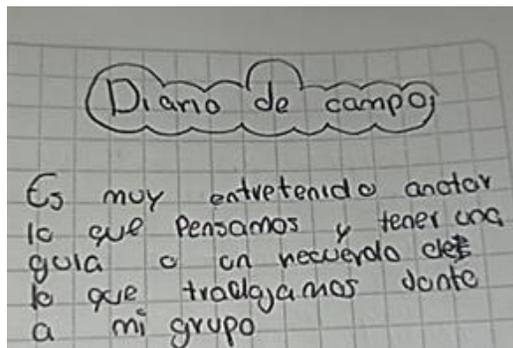 Diario de campo
Es muy entretenido anotar
lo que Pensamos y tener una
guia o un recuerdo de
lo que tradajamos donte
a mi grupo